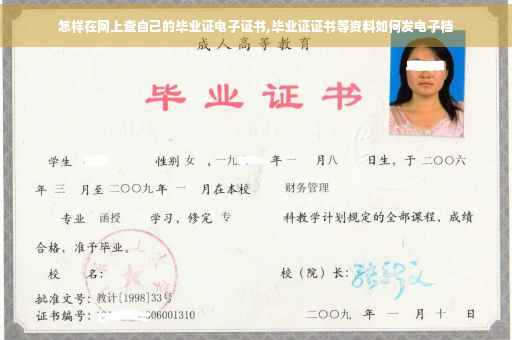 怎样在网上查自己的毕业证电子证书,毕业证证书等资料如何发电子档
成人高等教育
毕业证书
学生 性别 女 ，一九 年 一 月八 日生，于 二〇〇六
年 三 月至 二〇〇九 年 一 月在本校 财务管理
专业 函授 学习，修完 专 科教学计划规定的全部课程，成绩
合格，准予毕业。
校 名： 校（院）长：
批准文号：教计[1998]33号
证书编号： 06001310 二〇〇九 年 一 月 十 日